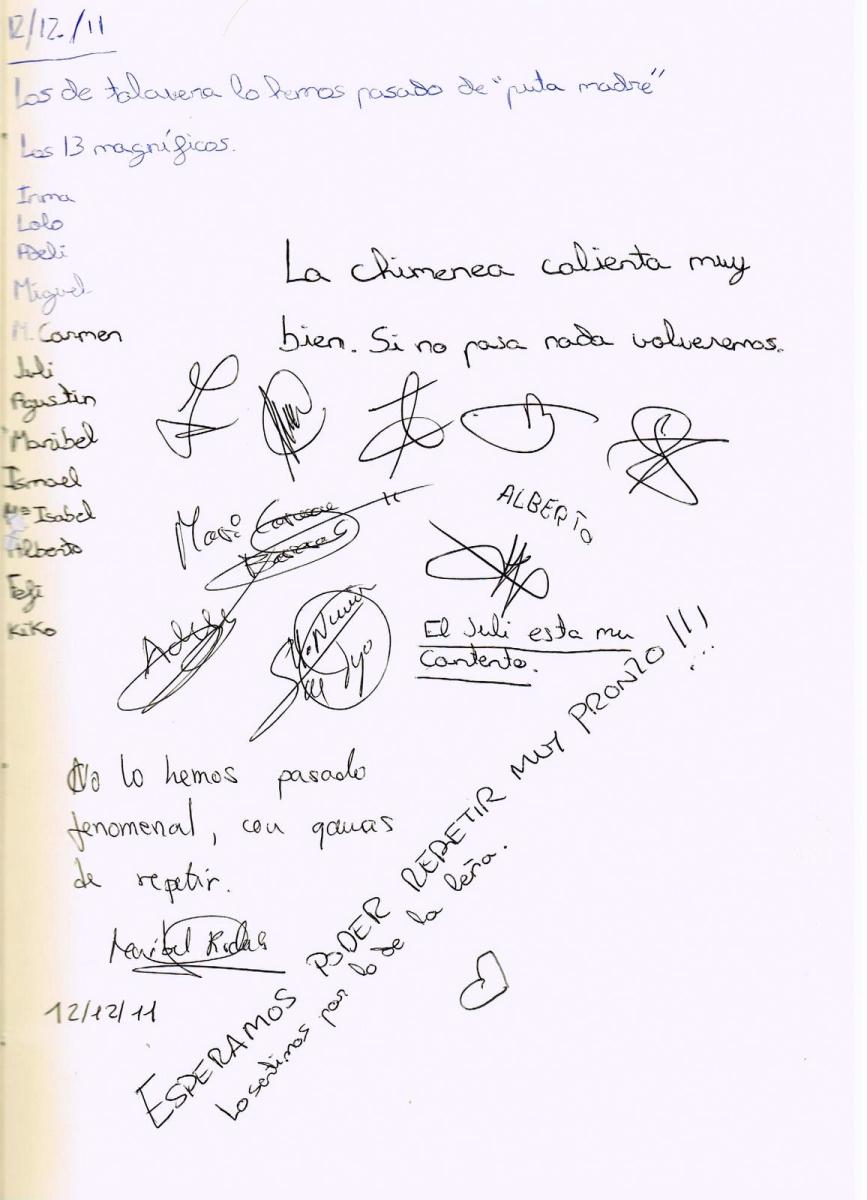 12/12/11
Los de talavera lo hemos pasado de "puta madre"
Los 13 magníficos.
Inma
Lolo
Adeli
Miguel
M. Carmen
Juli
Agustin
Maribel
Ismael
Mª Isabel
Alberto
Fefi
Kiko
La chimenea calienta muy
bien. Si no pasa nada volveremos.
Mari Carmen
ALBERTO
El Juli esta mu
contento.
No lo hemos pasado
fenomenal, con ganas
de repetir.
Maribel
12/12/11
ESPERAMOS PODER REPETIR MUY PRONTO!!!...
Lo sentimos por lo de la leña.